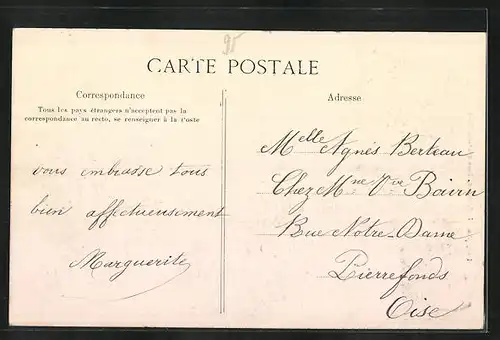 95
CARTE POSTALE
Correspondance
Tous les pays étrangers n'acceptent pas la
correspondance au recto, se renseigner à la Poste
vous embrasse tous
bien affectueusement
Marguerite
Adresse
Melle Agnès Berteau
Chez Mme Vve Boivin
Rue Notre-Dame
Pierrefonds
Oise